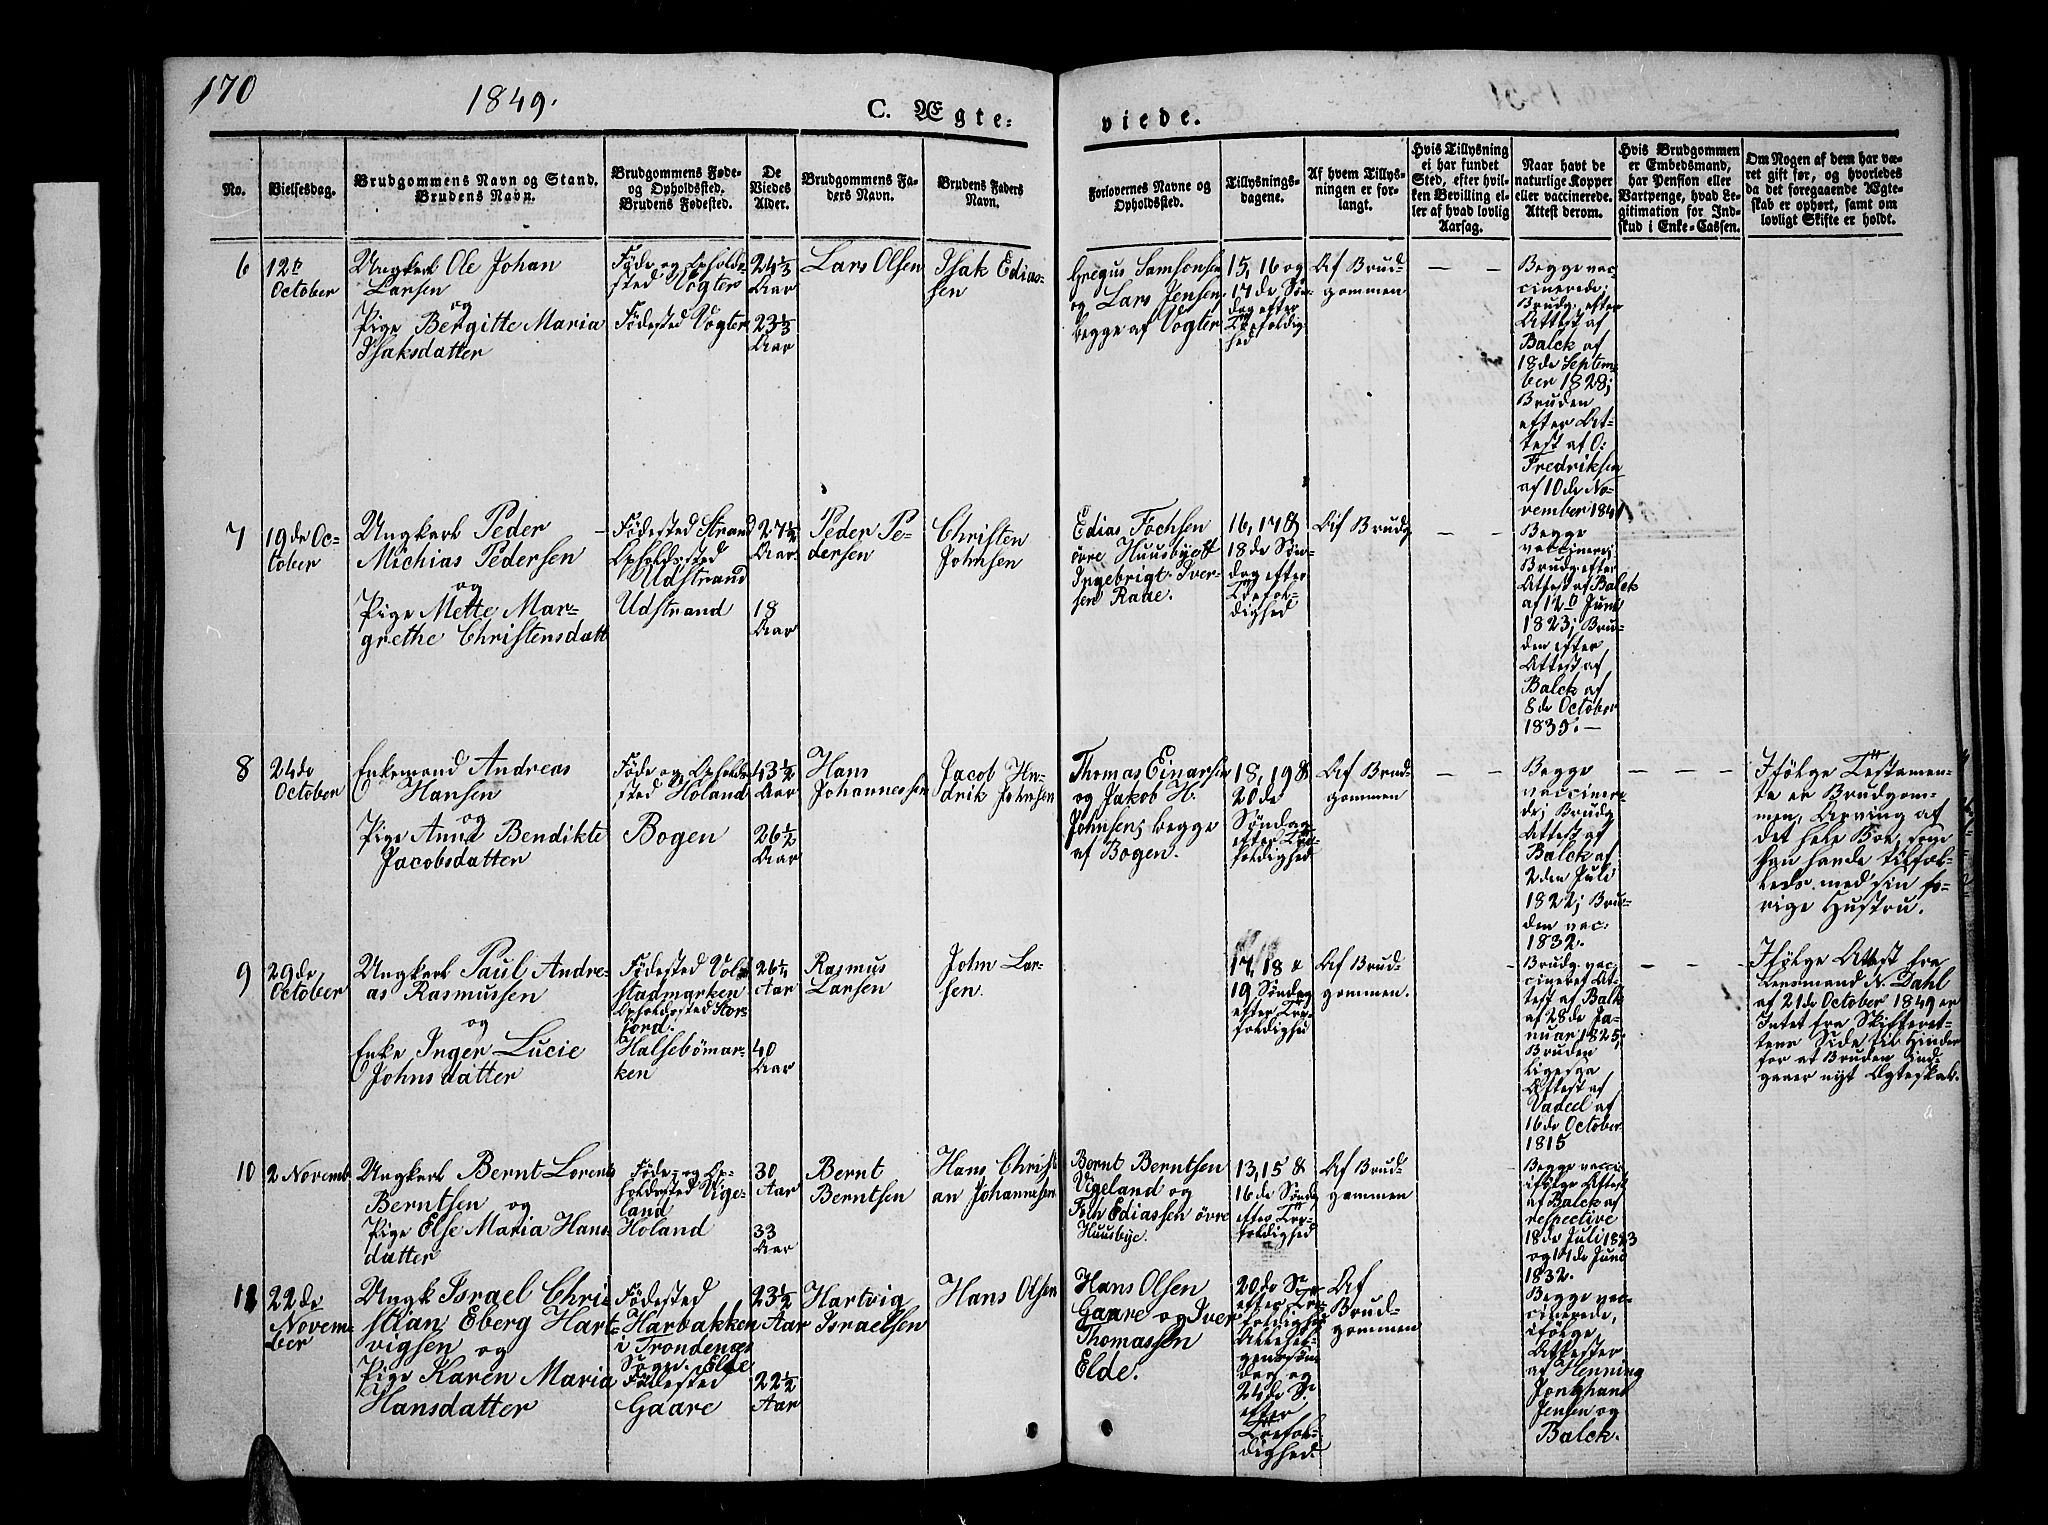 170
1849.
C. Ægte=
viede.
No.
Vielsesdag.
Brudgommens Navn og Stand.
Brudens Navn.
Brudgommens Føde-
og Opholdssted.
Brudens Fødested.
De
Viedes
Alder.
Brudgommens Fa-
ders Navn.
Brudens Faders
Navn.
Forlovernes Navne og
Opholdssted.
Tillysnings-
dagene.
Af hvem Tillys-
ningen er for-
langt.
Hvis Tillysning
ei har fundet
Sted, efter hvil-
ken Bevilling el-
ler af hvad lovlig
Aarsag.
Naar havt de
naturlige Kopper
eller vaccinerede.
Attest derom.
Hvis Brudgommen
er Embedsmand,
har Pension eller
Vartpenge, hvad Le-
gitimation for Ind-
skud i Enke-Cassen.
Om Nogen af dem har væ-
ret gift før, og hvorledes
da det foregaaende Ægte-
skab er ophørt, samt om
lovligt Skifte er holdt.
6
12te
October
Ungkarl Ole Johan
Larsen
og
Pige Bergitte Maria
Isaksdatter
Føde og Opholds-
sted Vogter
Fødested Vogter
24 1/3
Aar
23 1/3
Aar
Lars Olsen
Isak Edias-
sen
Gregus Samsonsen
og Lars Jensen
begge af Vogter
15, 16 og
17de Søn-
dag efter
Trefoldig
hed
Af Brud-
gommen
Begge vac-
cinerede;
Brudg. efter
Attest af
Balck af
18de Septem-
ber 1828;
Bruden
efter At-
test af O:
Fredriksen
af 10de No-
vember 1841
7
19de Oc-
tober
Ungkarl Peder
Michias Pedersen
og
Pige Mette Mar-
grethe Christensdatt
Fødested Strand
Opholdssted
Udstrand
Udstrand
27 1/2
Aar
18
Aar
Peder Pe-
dersen
Christen
Johnsen
Edias Fochsen
övre Huusbye &
Ingebrigt Iver-
sen Raae.
16, 17 &
18de Søn-
dag efter
Trefol-
dighed
Af Brudg
Begge
vaccinered;
Brudg. efter
Attest af Balck
af 12te Juni
1823; Bru-
den efter
Attest af
Balck af
8de October
1835. —
8
24de
October
Enkemand Andreas
Hansen
og
Pige Anne Bendikte
Jacobsdatter
Føde og Opholds
sted Holand
Bogen
43 1/2
Aar
26 1/2
Aar
Hans
Johannessen
Jacob Hn-
drik Johnsen
Thomas Einarsen
og Jakob H.
Johnsen; begge
af Bogen.
18, 19 &
20de
Søndag
efter Tre-
foldighed
Af Brud-
gommen
Begge
vaccinere-
de; Brudg
Attest af
Balck af
2den Juli
1822; Bru-
den vac.
1832.
Ifølge Testamen-
te er Brudgom-
men, Arving af
det hele Boe, som
han havde tilfæl-
leds med sin fo-
rige Hustru.
9
29de
October
Ungkarl Paul Andre-
as Rasmussen
og
Enke Inger Lucie
Johnsdatter
Fødested Vol-
stadmarken
Opholdssted Stor
fjord.
Halsebömar-
ken
Aar
40
Aar
Rasmus
Larsen
John Lar-
sen.
17, 18 &
19 Søndag
efter Tre-
foldighed
Af Brud-
gommen.
Brudg. vac-
cineret At-
test af Balck
af 28de Ja-
nuar 1825;
Bruden
Ligesaa
Attest af
af
16de October
1815
Ifølge Attest fra
Lensmand N. Dahl
af 21de October 1849 er
Intet fra Skifteret-
tens Side til Hinder
for at Bruden ind-
gaaer nyt Ægteskab.
10
2 Novemb
Ungkarl Bernt Lorents
Berntsen og
Pige Else Maria Hans-
datter
Føde- og Op-
holdssted Vige-
land
Holand
30
Aar
33
Aar
Bernt
Berntsen
Hans Christ
an Johannesen
Bernt Berntsen
Vigeland og
Foch Ediassen övre
Huusbye.
13, 15 &
16de Søndg
efter Tre-
foldighed
Af Brud-
gommen
Begge vacci
ifølge Attest
af Balck af
respective
18de Juli 1823
og 14de Juni
1832.
11
22de
Novem-
ber
Ungk Israel Chri-
stian Eberg Hart-
vigsen og
Pige Karen Maria
Hansdatter
Fødested
Harbakken
i Trondenæs
Sogn. Elde
Fødested
Gaare
23 1/2
Aar
22 1/2
Aar
Hartvig
Israelsen
Hans Olsen
Hans Olsen
Gaare og Iver
Thomassen
Elde.
20de S.
efter Tre-
foldighed
Allehel-
genssøn
dag og
24de S.
efter
Trefol-
dighed
Af
Brud-
gommen
Begge vac-
cinerede,
ifølge
Attester
af Henning
Junghans
Jensen og
Balck.